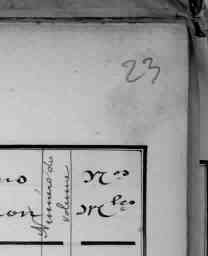 23
Numéro du
volume
Nos
Mles